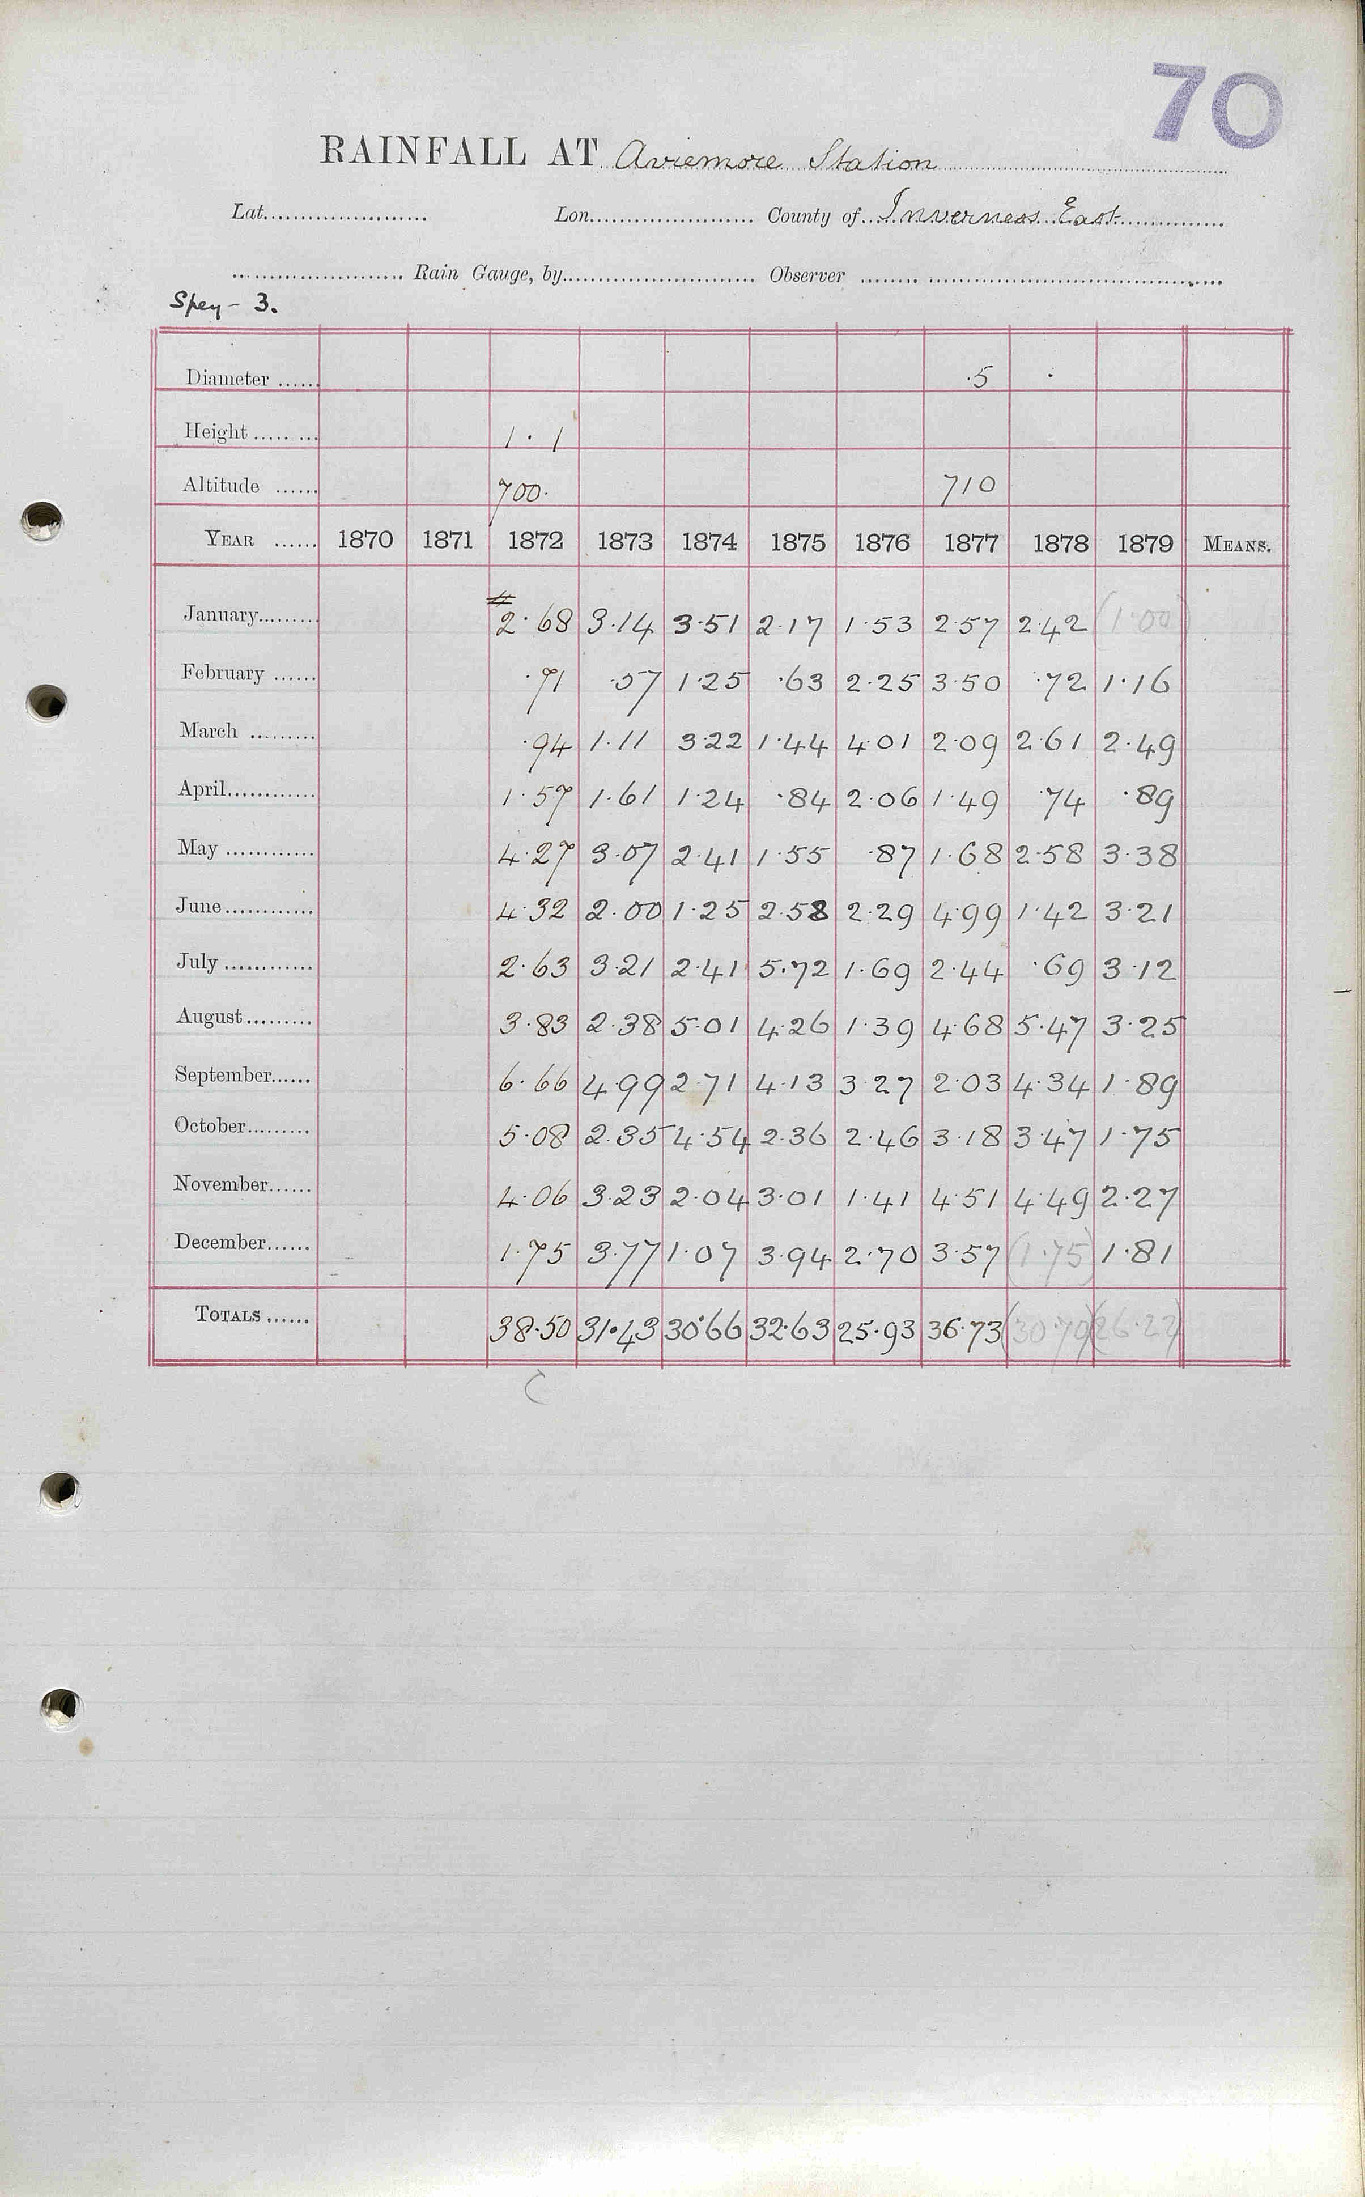 70
RAINFALL AT Aviemore Station
Lat. Lon. County of Inverness East
Rain Gauge, by Observer
Spey - 3.
Diameter ...... ·5 ·
Height ......... 1·1
Altitude ...... 700· 710
YEAR ...... 1870 1871 1872 1873 1874 1875 1876 1877 1878 1879 MEANS.
January......... 2·68 3·14 3·51 2·17 1·53 2·57 2·42 (1·00)
February ...... ·71 ·57 1·25 ·63 2·25 3·50 ·72 1·16
March ......... ·94 1·11 3·22 1·44 4·01 2·09 2·61 2·49
April............ 1·57 1·61 1·24 ·84 2·06 1·49 ·74 ·89
May ............ 4·27 3·07 2·41 1·55 ·87 1·68 2·58 3·38
June............ 4·32 2·00 1·25 2·58 2·29 4·99 1·42 3·21
July ............ 2·63 3·21 2·41 5·72 1·69 2·44 ·69 3·12
August......... 3·83 2·38 5·01 4·26 1·39 4·68 5·47 3·25
September...... 6·66 4·99 2·71 4·13 3·27 2·03 4·34 1·89
October......... 5·08 2·35 4·54 2·36 2·46 3·18 3·47 1·75
November...... 4·06 3·23 2·04 3·01 1·41 4·51 4·49 2·27
December...... 1·75 3·77 1·07 3·94 2·70 3·57 (1·75) 1·81
TOTALS ...... 38·50 31·43 30·66 32·63 25·93 36·73 (30·70) (26·22)
C